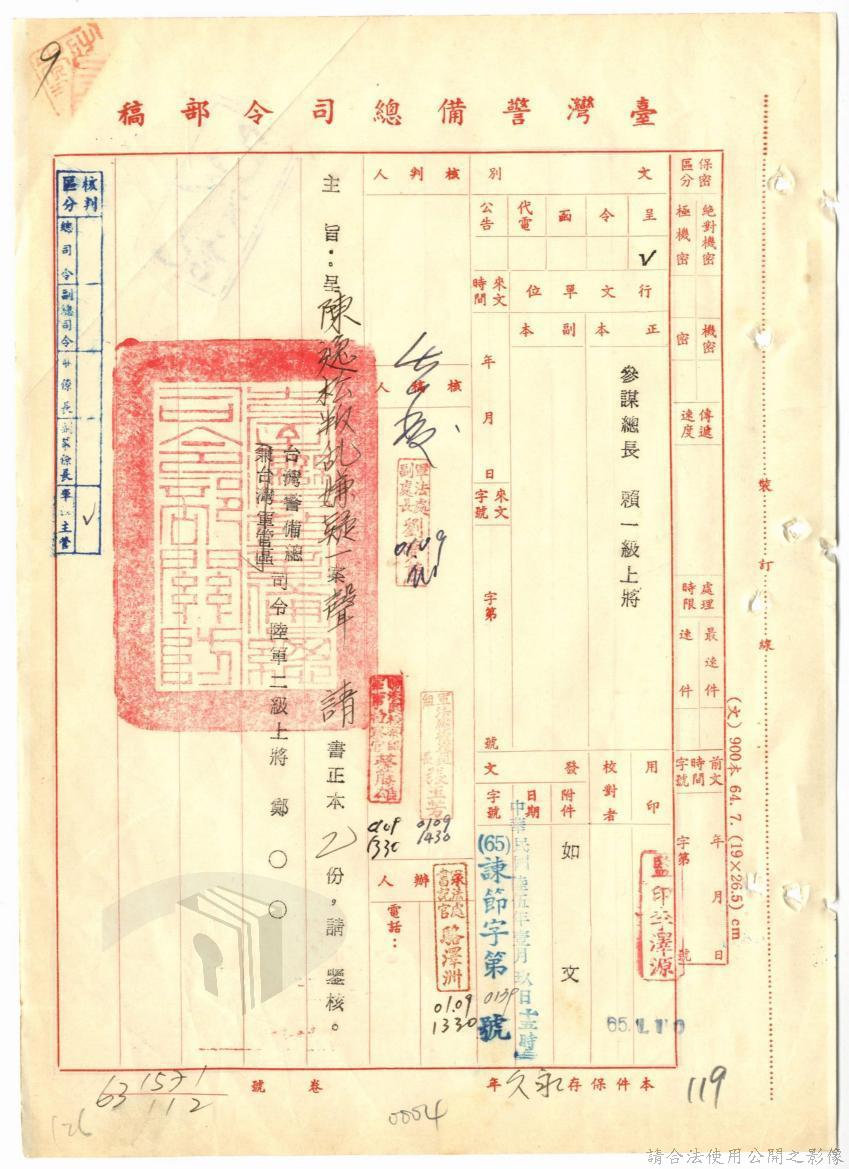 臺灣警備總司令部稿
保密區分
絕對機密
極機密
機密
密
傳遞速度
處理時限
最速件
速件
前文時間字號
年月日
字第號
文別
呈
令
函
代電
公告
✓
行文單位
正本
副本
參謀總長 賴一級上將
來文時間
年月日
來文字號
字第號
用印
校對者
監印李澤源
65.1.10
發文
附件
如文
日期
中華民國陸伍年壹月玖日十五時
字號
(65)諫節字第0139號
核判人
核稿人
軍法處副處長劉
01.09
組長張玉芳
01.09
1430
蔡藤雄
01.09
1330
承辦人
軍法處書記官駱澤洲
01.09
1330
電話：
主旨：呈陳逸松叛亂嫌疑一案聲請書正本乙份，請 鑒核。
台灣警備總
兼台灣軍管區
司令陸軍二級上將 鄭○○
核判區分
總司令
副總司令
參謀長
副參謀長
單位主管
✓
裝訂線
(文) 900本 64. 7. (19×26.5) cm
本件保存永久年
卷號
1571
63 112
119
0004
126
9
請合法使用公開之影像